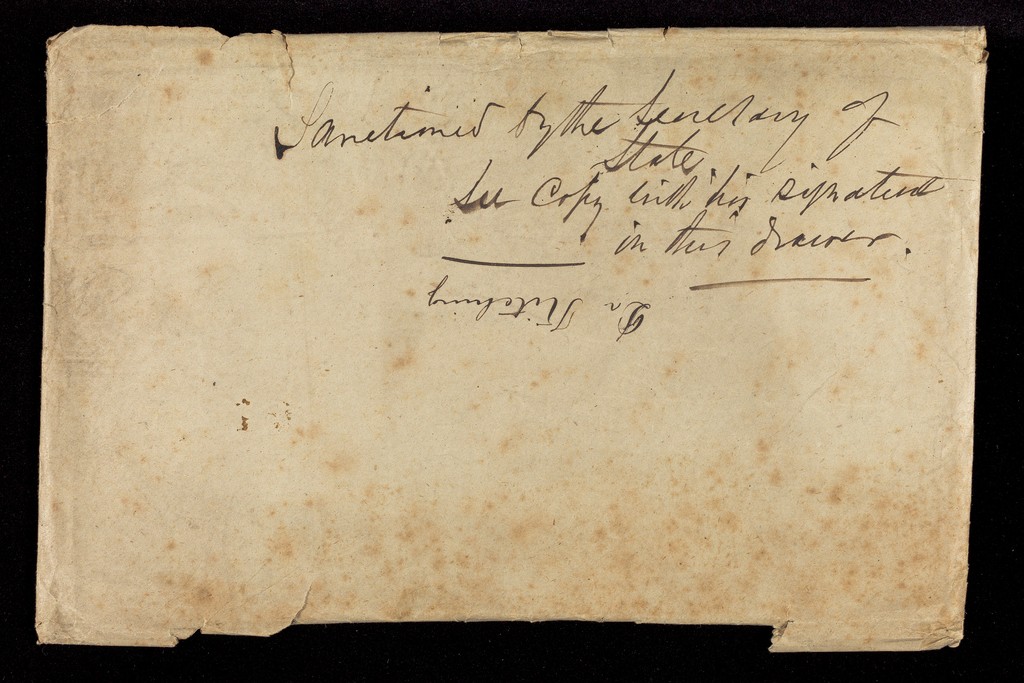 Sanctioned by the Secretary of
State
See Copy with his signature
in this drawer.
Dr Kitching